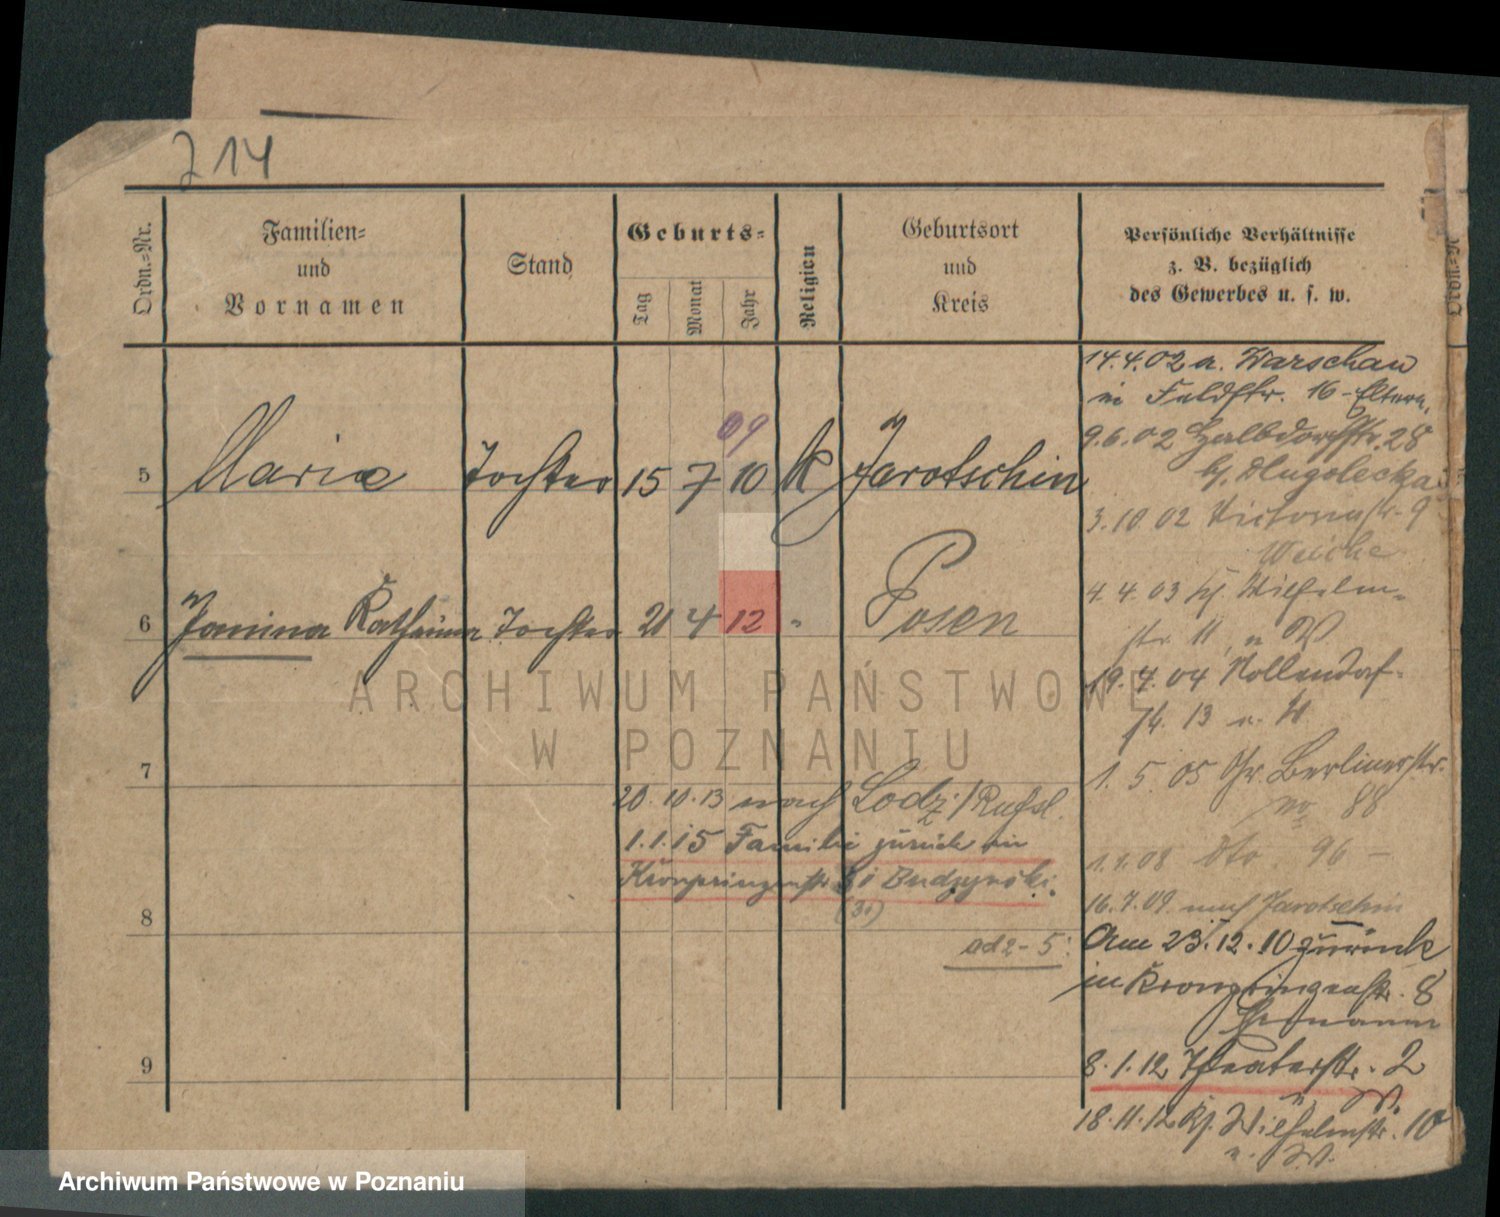 714
Ordn.-Nr.
Familien-
und
Vornamen
Stand
Geburts-
Tag
Monat
Jahr
Religion
Geburtsort
und
Kreis
Persönliche Verhältnisse
z. B. bezüglich
des Gewerbes u. s. w.
Ordn.-N
14.4.02 a. Warschau
in Feldstr. 16 - Eltern.
9.6.02 Halbdorfstr. 28
bj. Dlugolecka
09
5 Maria Tochter 15 7 10 k Jarotschin
3.10.02 Victoriastr. 9
Weiche
4.4.03 bj. Wilhelm-
6 Janina Katharina Tochter 21 4 12 " Posen
str. 11 n W.
19.4.04 Nollendorf-
str. 13 n. W
7
1.5.05 Gr. Berlinerstr.
No 88
20.10.13 nach Lodz / Rußl.
1.1.15 Familie zurück in
Kronprinzenstr. bei Budzynski.
(31)
1.1.08 dto. 96 -
16.7.09 nach Jarotschin
8
ad 2-5: Am 23.12.10 zurück
in Kronprinzenstr. 8
9
8.1.12 Theaterstr. 2
W.
18.11.12 Kj. Wilhelmstr. 10
n. W.
ARCHIWUM PAŃSTWOWE
W POZNANIU
Archiwum Państwowe w Poznaniu